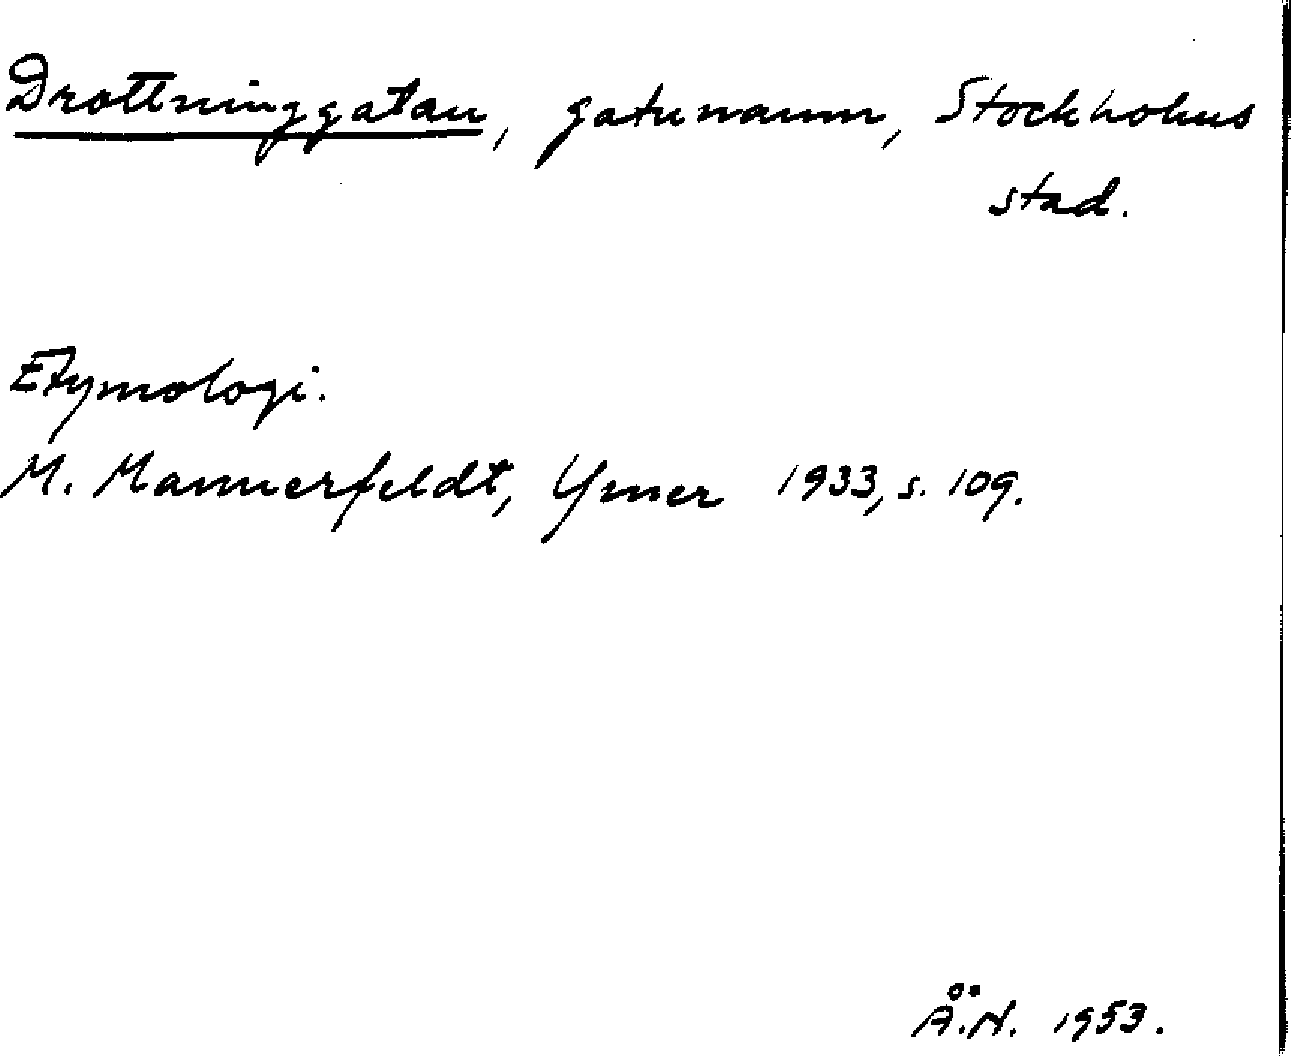 Drottninggatan, gatunamn, Stockholms
stad.
Etymologi.
M. Mannerfeldt, Ymer 1933, s. 109.
Å.N. 1953.